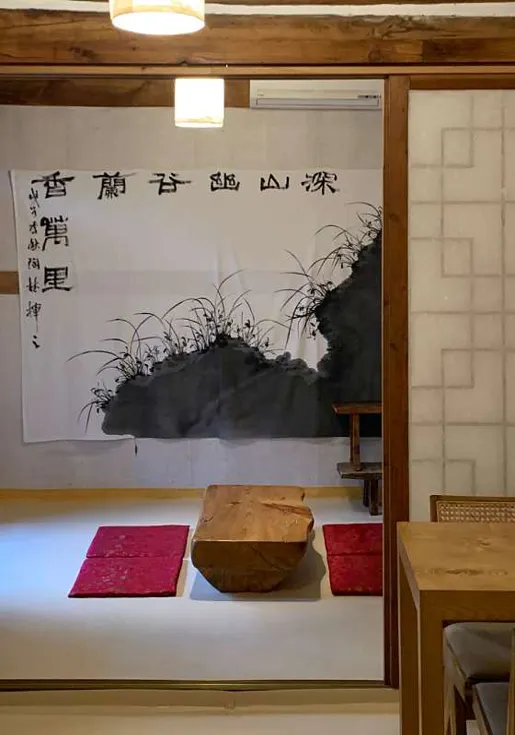 深山幽谷蘭香
萬里
揮之